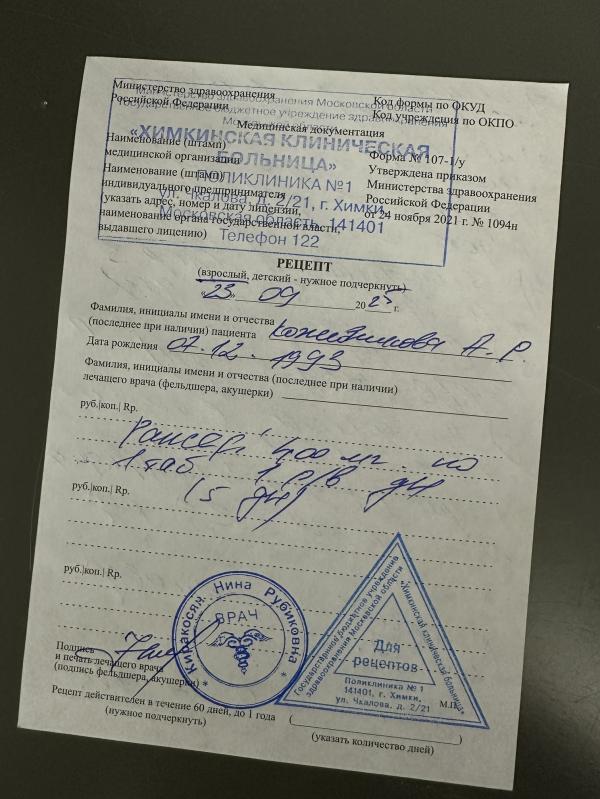 Министерство здравоохранения
Российской Федерации
Код формы по ОКУД
Код учреждения по ОКПО
Министерство здравоохранения Московской области
Государственное бюджетное учреждение здравоохранения
Московской области
«ХИМКИНСКАЯ КЛИНИЧЕСКАЯ
БОЛЬНИЦА»
ПОЛИКЛИНИКА №1
ул. Чкалова, д. 2/21, г. Химки,
Московская область, 141401
Телефон 122
Медицинская документация
Наименование (штамп)
медицинской организации
Наименование (штамп)
индивидуального предпринимателя
(указать адрес, номер и дату лицензии,
наименование органа государственной власти,
выдавшего лицензию)
Форма № 107-1/у
Утверждена приказом
Министерства здравоохранения
Российской Федерации
от 24 ноября 2021 г. № 1094н
РЕЦЕПТ
(взрослый, детский - нужное подчеркнуть)
«23» 09 2025 г.
Фамилия, инициалы имени и отчества
(последнее при наличии) пациента А. Р.
Дата рождения 07.12.1993
Фамилия, инициалы имени и отчества (последнее при наличии)
лечащего врача (фельдшера, акушерки)
руб.|коп.| Rp.
400 мг по
1 таб 1 р/в дн
(5 дн)
руб.|коп.| Rp.
руб.|коп.| Rp.
Киракосян Нина Рубиковна
ВРАЧ
Государственное бюджетное учреждение
здравоохранения Московской области
«Химкинская клиническая больница»
Для
рецептов
Поликлиника № 1
141401, г. Химки,
ул. Чкалова, д. 2/21
Подпись
и печать лечащего врача
(подпись фельдшера, акушерки)
М.П.
Рецепт действителен в течение 60 дней, до 1 года (
)
(нужное подчеркнуть)
(указать количество дней)